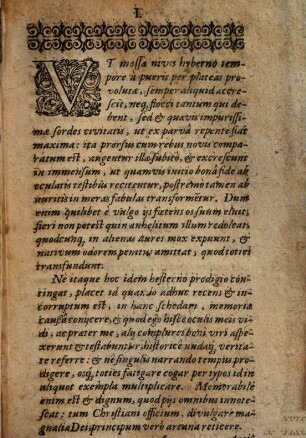 I.
VT mossa nivis hyberno tem-
pore à pueris per plateas pro-
volutæ, semper aliquid accre-
scit, neq, flocci tantum qui de-
bent, sed & quævis impurissi-
mæ sordes civitatis, ut ex parvâ repente fiat
maxima: ita prorsu cum rebus novis compa-
ratum est, augentur illæ subitò, & excrescunt
in immensum, ut quamvis initio bonâ fide ab
oculatis testibus recitentur, postremo tamen ab
auritis in meras fabulas transformetur. Dum
enim quilibet è vulgo ijs fœtens os suum eluit,
fieri non potest quin anhelitum illum redoleat,
quodcunq, in alienas aures mox expuunt, &
nativum odorem penitus amittat, quod toties
transfundunt.
Ne itaque hoc idem hesterno prodigio con-
tingat, placet id quando adhuc recens & in-
corruptum est, in hanc schedam, memoriæ
causâ conycere, & quod ego hisce oculis meis vi-
di, ac præter me, alij complures boni viri aspe-
xerunt & testabuntur, historicè nudaq, veritate
referre: & ne singulis narrando tempus pro-
digere, osq, toties fatigare cogar per typos id in
aliquot exempla multiplicare. Memorabile
enim est & dignum, quod pijs omnibus innote-
scat: tum Christiani officium, divulgare ma-
gnalia Dei, principum verò arcana reticere.